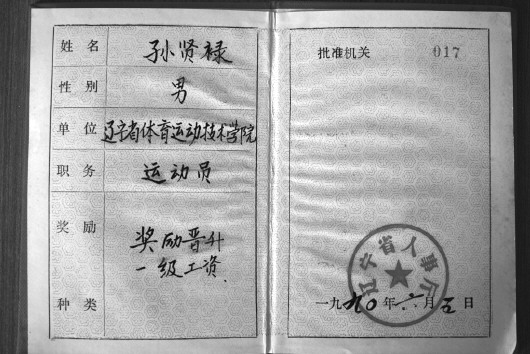 姓名 孙贤禄
性别 男
单位 辽宁省体育运动技术学院
职务 运动员
奖励 奖励晋升
一级工资
种类
批准机关 017
辽宁省人事厅
一九九〇年六月五日